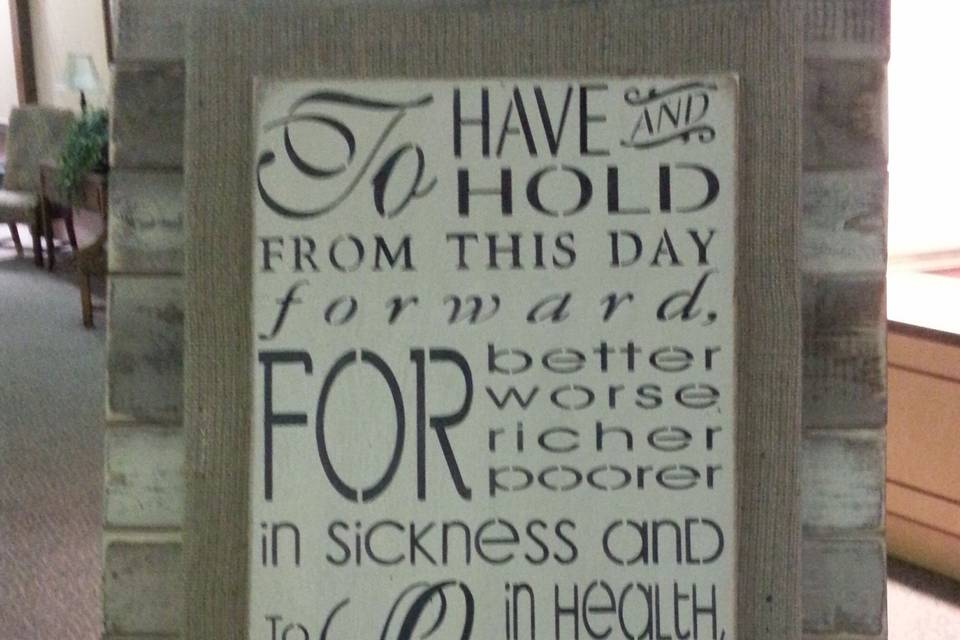 To HAVE AND
HOLD
FROM THIS DAY
forward,
FOR better
worse
richer
poorer
in sickness and
in HeaLtH,
To